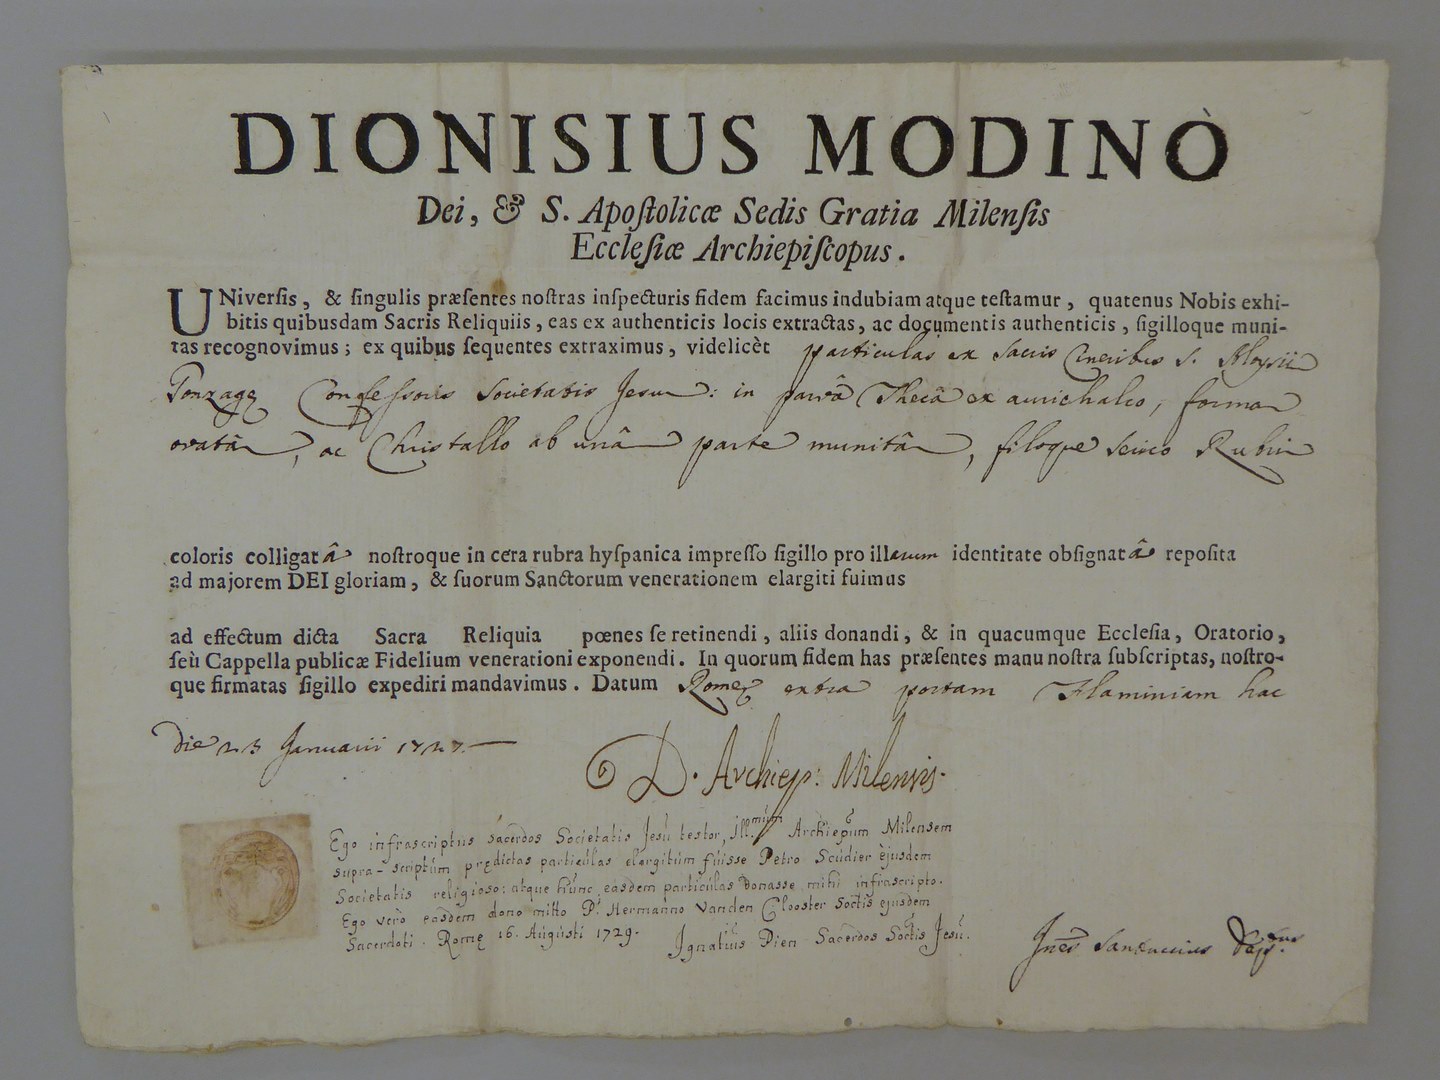 DIONISIUS MODINÒ
Dei, & S. Apoſtolicæ Sedis Gratia Milenſis
Eccleſiæ Archiepiſcopus.
UNiverſis, & ſingulis præſentes noſtras inſpecturis fidem facimus indubiam atque teſtamur, quatenus Nobis exhi-
bitis quibusdam Sacris Reliquiis, eas ex authenticis locis extractas, ac documentis authenticis, ſigilloque muni-
tas recognovimus; ex quibus ſequentes extraximus, videlicèt particulas ex sacris Cineribus S. Aloysii
Gonzagę Confeſsoris Societatis Jesu: in parvâ Thecâ ex aurichalco, forma
ovatâ, ac Christallo ab unâ parte munitâ, filoque serico Rubri
coloris colligatâ noſtroque in cera rubra hyſpanica impreſſo ſigillo pro illarum identitate obſignatâ repoſita
ad majorem DEI gloriam, & ſuorum Sanctorum venerationem elargiti fuimus
ad effectum dicta Sacra Reliquia pœnes ſe retinendi, aliis donandi, & in quacumque Eccleſia, Oratorio,
ſeù Cappella publicæ Fidelium venerationi exponendi. In quorum fidem has præſentes manu noſtra ſubſcriptas, noſtro-
que firmatas ſigillo expediri mandavimus. Datum Romę extra portam Flaminiam hac
die 23 Januarii 1727.
D. Archiep: Milensis.
Ego infrascriptus sacerdos Societatis Jesu testor, Ill.mum Archiepũm Milensem
supra-scriptum prędictas particulas elargitum fuisse Petro Scudier ejusdem
Societatis religioso: atque hunc easdem particulas donasse mihi infrascripto.
Ego verò easdem dono mitto P. Hermanno Vanden Clooster Soctis ejusdem
Sacerdoti. Romę 16. Augusti 1729. Ignatius Dien Sacerdos Soctis Jesu.
Santuccius